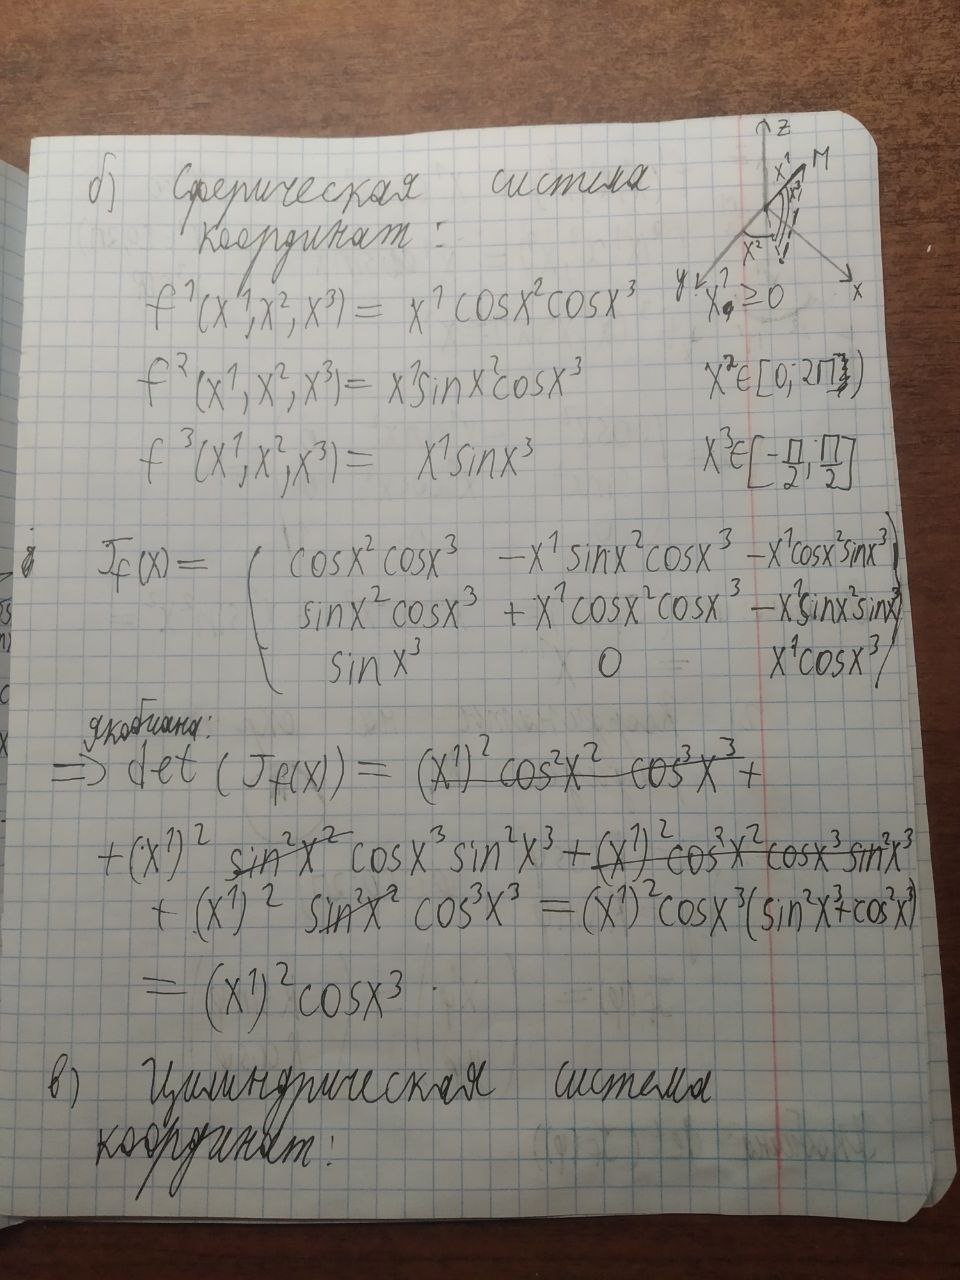 б) Сферическая система
координат:
z
M
x¹
x³
x²
y
x
f¹(x¹,x²,x³) = x¹ cosx² cosx³
x¹ ≥ 0
f²(x¹,x²,x³) = x¹sinx²cosx³
x² ∈ [0; 2π)
f³(x¹,x²,x³) = x¹sinx³
x³ ∈ [-π/2; π/2]
J_f(x) = ( cosx² cosx³ -x¹ sinx² cosx³ -x¹cosx²sinx³ )
sinx² cosx³ + x¹cosx²cosx³ -x¹sinx²sinx³
sinx³ 0 x¹cosx³
якобиана:
=> det (J_f(x)) = (x¹)² cos²x² cos³x³ +
+ (x¹)² sin²x² cosx³ sin²x³ + (x¹)² cos²x² cosx³ sin²x³
+ (x¹)² sin²x² cos³x³ = (x¹)² cosx³ (sin²x³+cos²x³)
= (x¹)² cosx³
в) Цилиндрическая система
координат: